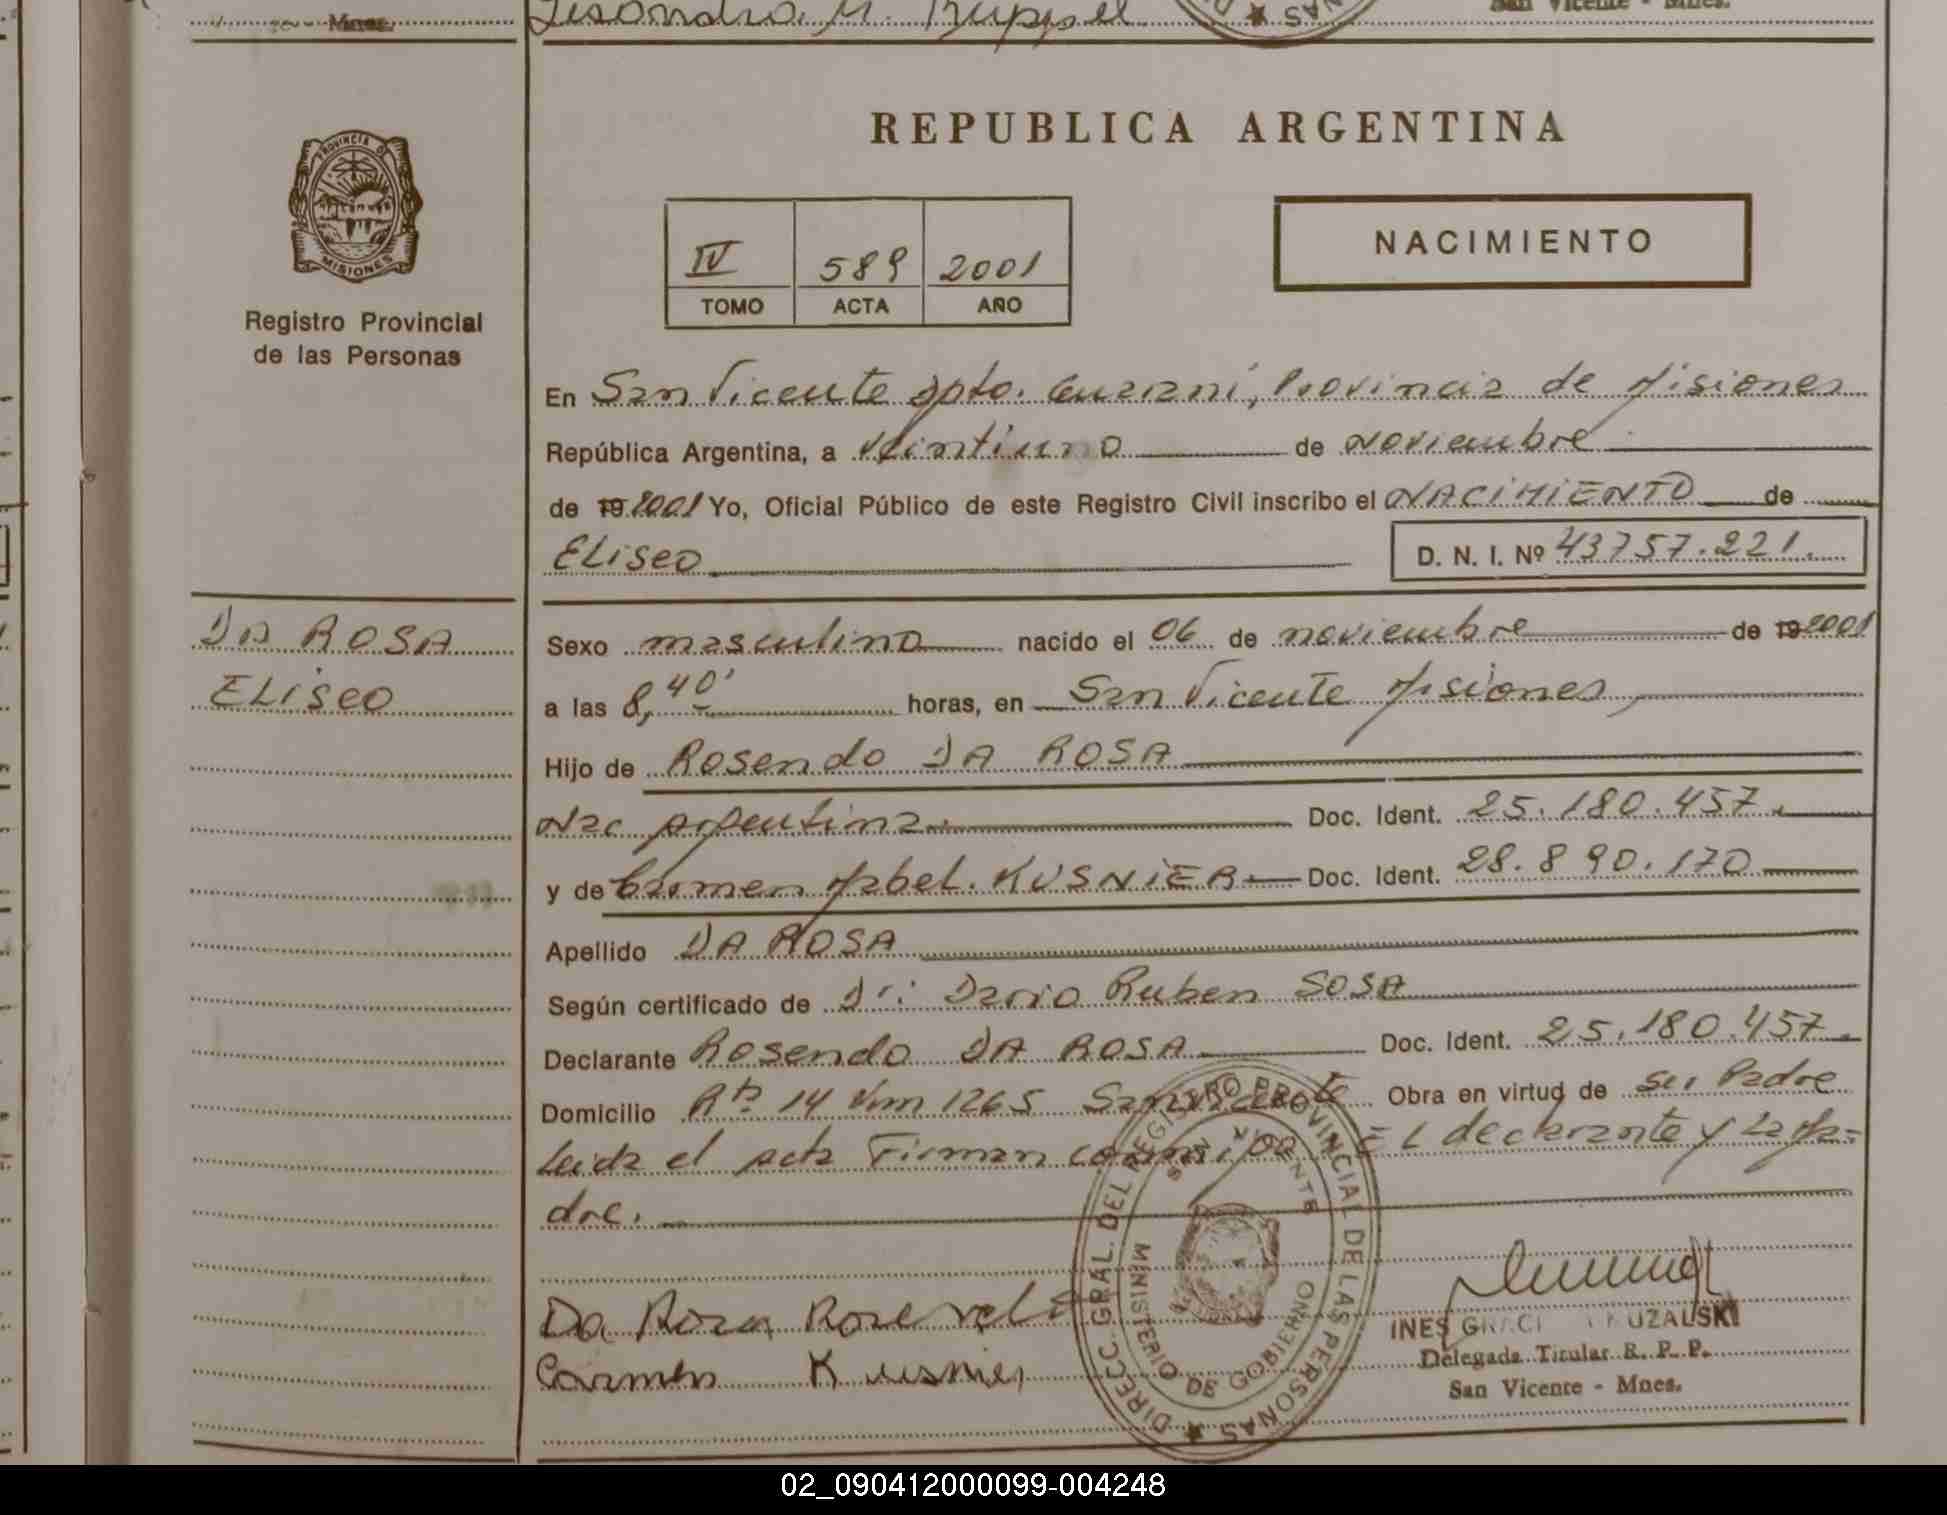 REPUBLICA ARGENTINA
PROVINCIA DE
MISIONES
Registro Provincial
de las Personas
IV 589 2001
TOMO ACTA AÑO
NACIMIENTO
En San Vicente Dpto. Guarani, Provincia de Misiones
República Argentina, a veintiuno de noviembre
de 19 2001 Yo, Oficial Público de este Registro Civil inscribo el NACIMIENTO de
ELiseo D. N. I. Nº 43757.221.
DA ROSA
ELiseo
Sexo masculino nacido el 06 de noviembre de 19 2001
a las 8,40' horas, en San Vicente Misiones,
Hijo de Rosendo DA ROSA
Nac Argentina. Doc. Ident. 25.180.457.
y de Carmen Mabel. KUSNIER Doc. Ident. 28.890.170
Apellido DA ROSA
Según certificado de Dr: Dario Ruben SOSA
Declarante Rosendo DA ROSA Doc. Ident. 25.180.457.
Domicilio Rta. 14 Km 1265 San Vicente Obra en virtud de ser Padre
Leida el acta Firman conmigo EL declarante y La Ma=
dre.
DIRECC. GRAL. DEL REGISTRO PROVINCIAL DE LAS PERSONAS
SAN VICENTE
MINISTERIO DE GOBIERNO
Da Rosa
Carmen Kusnier
INES
Delegada Titular R. P. P.
San Vicente - Mnes.
02_090412000099-004248